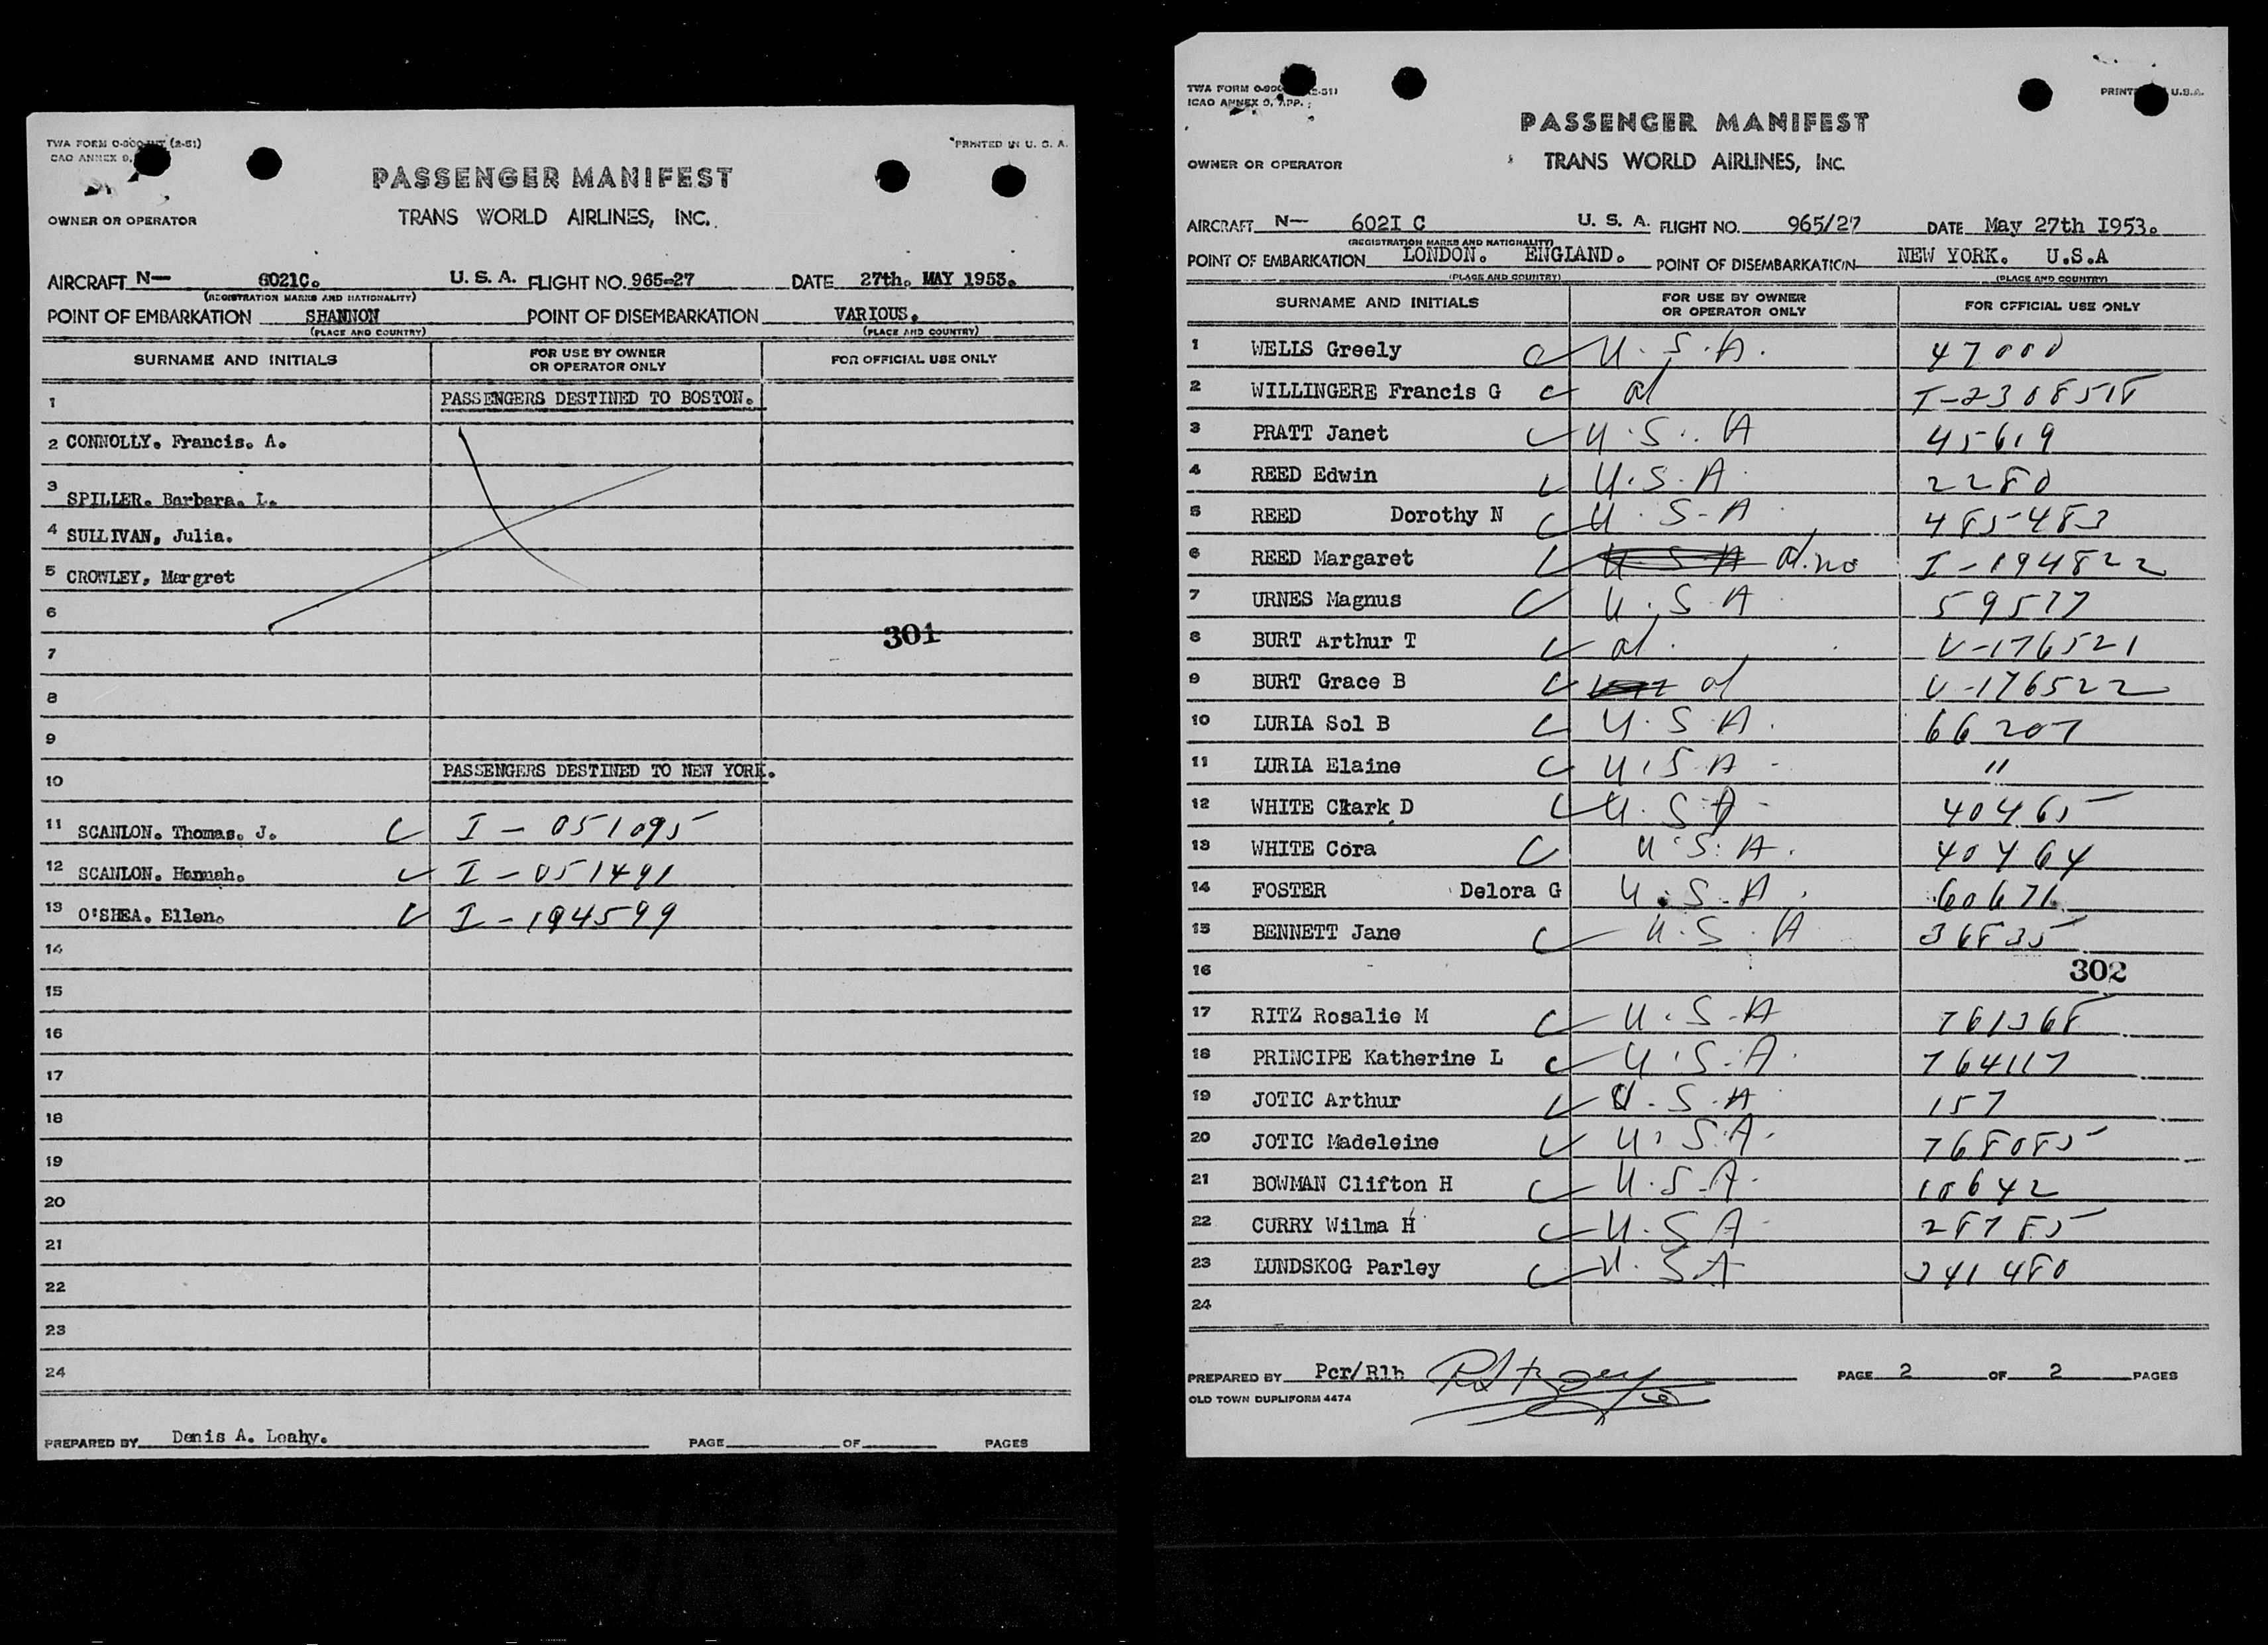 TWA FORM 0-800-INT (2-51)
CAO ANNEX 9,
PRINTED IN U. S. A.
PASSENGER MANIFEST
OWNER OR OPERATOR
TRANS WORLD AIRLINES, INC.
AIRCRAFT N— 6021C. U. S. A. FLIGHT NO. 965-27 DATE 27th. MAY 1953.
(REGISTRATION MARKS AND NATIONALITY)
POINT OF EMBARKATION SHANNON POINT OF DISEMBARKATION VARIOUS.
(PLACE AND COUNTRY) (PLACE AND COUNTRY)
SURNAME AND INITIALS FOR USE BY OWNER OR OPERATOR ONLY FOR OFFICIAL USE ONLY
1 PASSENGERS DESTINED TO BOSTON.
2 CONNOLLY. Francis. A.
3 SPILLER. Barbara. L.
4 SULLIVAN, Julia.
5 CROWLEY, Margret
6
301
7
8
9
PASSENGERS DESTINED TO NEW YORK.
10
11 SCANLON. Thomas. J. I - 051095
12 SCANLON. Hannah. I - 051491
13 O'SHEA. Ellen. I - 194599
14
15
16
17
18
19
20
21
22
23
24
PREPARED BY Denis A. Leahy. PAGE OF PAGES
TWA FORM 0-800 (2-51)
ICAO ANNEX 9, APP.
PRINT U.S.A.
PASSENGER MANIFEST
OWNER OR OPERATOR TRANS WORLD AIRLINES, INC.
AIRCRAFT N— 602I C U. S. A. FLIGHT NO. 965/27 DATE May 27th I953.
(REGISTRATION MARKS AND NATIONALITY)
POINT OF EMBARKATION LONDON. ENGLAND. POINT OF DISEMBARKATION NEW YORK. U.S.A
(PLACE AND COUNTRY) (PLACE AND COUNTRY)
SURNAME AND INITIALS FOR USE BY OWNER OR OPERATOR ONLY FOR OFFICIAL USE ONLY
1 WELLS Greely U.S.A. 47000
2 WILLINGERE Francis G al I-2308518
3 PRATT Janet U.S.A 45619
4 REED Edwin U.S.A 2280
5 REED Dorothy N U.S.A 485483
6 REED Margaret U S A al. no I-194822
7 URNES Magnus U.S.A 59577
8 BURT Arthur T al. V-176521
9 BURT Grace B al V-176522
10 LURIA Sol B U.S.A. 66207
11 LURIA Elaine U.S.A "
12 WHITE Clark D U.S.A 40465
13 WHITE Cora U.S.A. 40464
14 FOSTER Delora G U.S.A. 60671
15 BENNETT Jane U.S.A 36835
16 302
17 RITZ Rosalie M U.S.A 761368
18 PRINCIPE Katherine L U.S.A. 764117
19 JOTIC Arthur U.S.A 157
20 JOTIC Madeleine U.S.A. 768085
21 BOWMAN Clifton H U.S.A. 10642
22 CURRY Wilma H U.S.A 28785
23 LUNDSKOG Parley U.S.A 341480
24
PREPARED BY Pcr/Rlh PAGE 2 OF 2 PAGES
OLD TOWN DUPLIFORM 4474